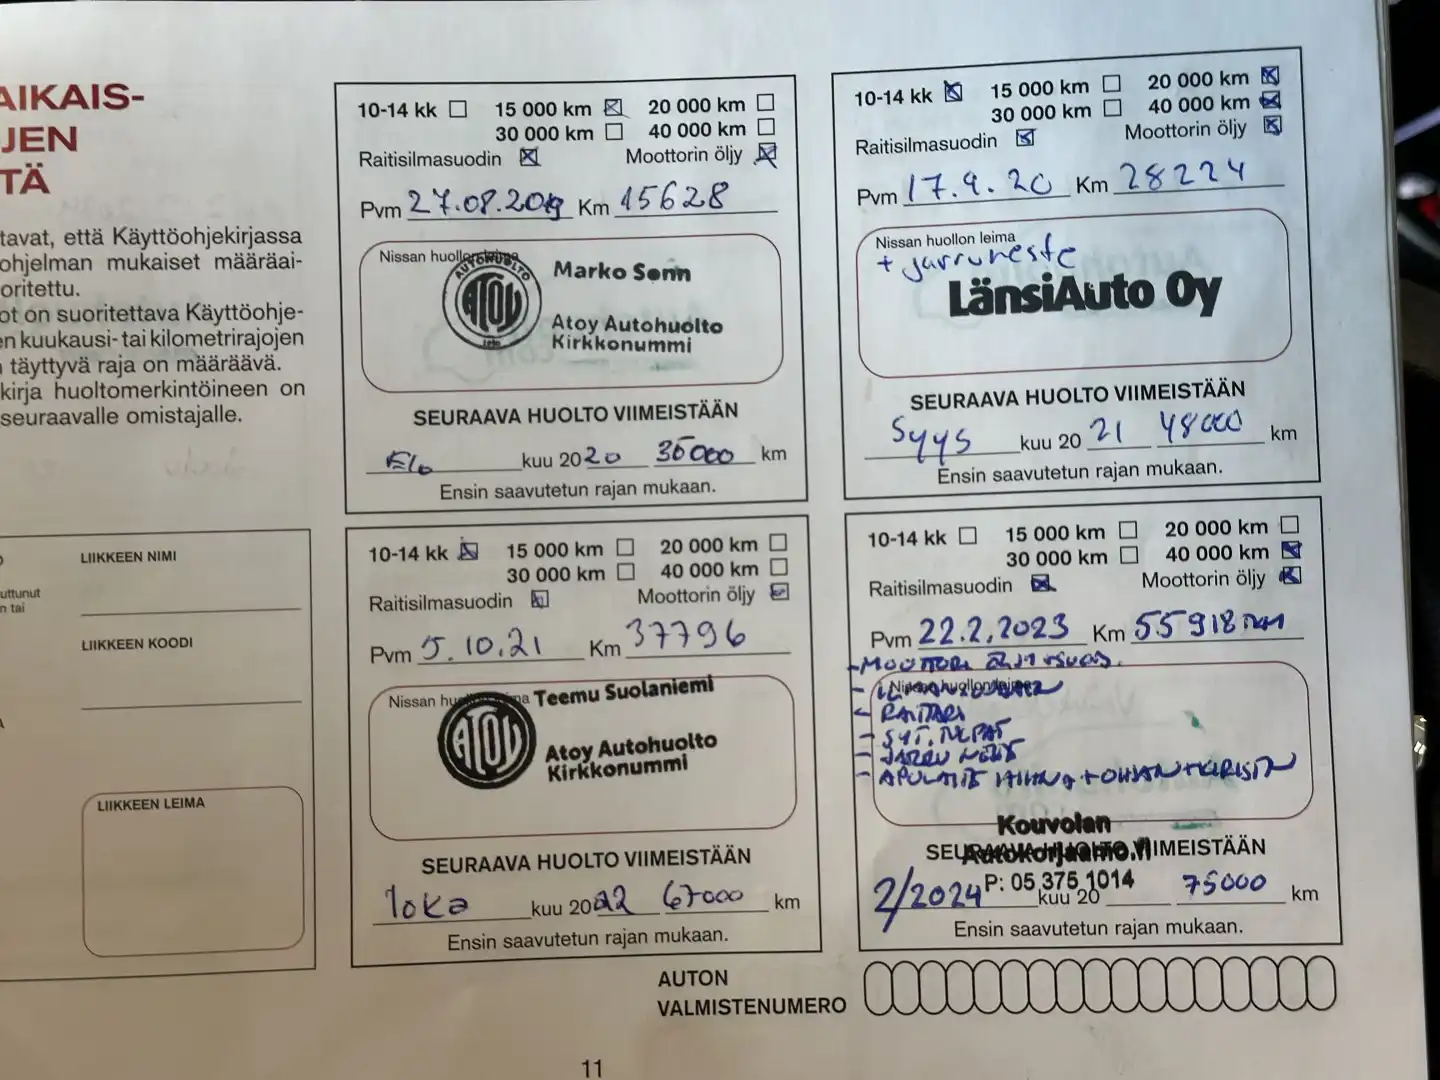 AIKAIS-
JEN
TÄ
tavat, että Käyttöohjekirjassa
ohjelman mukaiset määräai-
oritettu.
ot on suoritettava Käyttöohje-
en kuukausi- tai kilometrirajojen
täyttyvä raja on määräävä.
kirja huoltomerkintöineen on
seuraavalle omistajalle.
uttunut
n tai
LIIKKEEN NIMI
LIIKKEEN KOODI
LIIKKEEN LEIMA
10-14 kk 15 000 km 20 000 km
30 000 km 40 000 km
Raitisilmasuodin Moottorin öljy
Pvm 27.08.2019 Km 15628
Nissan huollon leima
AUTOHUOLTO
ATOY
Marko Senn
Atoy Autohuolto
Kirkkonummi
SEURAAVA HUOLTO VIIMEISTÄÄN
Elo kuu 2020 35000 km
Ensin saavutetun rajan mukaan.
10-14 kk 15 000 km 20 000 km
30 000 km 40 000 km
Raitisilmasuodin Moottorin öljy
Pvm 17.9.20 Km 28224
Nissan huollon leima
+ jarruneste
LänsiAuto Oy
SEURAAVA HUOLTO VIIMEISTÄÄN
Syys kuu 20 21 48000 km
Ensin saavutetun rajan mukaan.
10-14 kk 15 000 km 20 000 km
30 000 km 40 000 km
Raitisilmasuodin Moottorin öljy
Pvm 5.10.21 Km 37796
Nissan huollon leima
ATOY
Teemu Suolaniemi
Atoy Autohuolto
Kirkkonummi
SEURAAVA HUOLTO VIIMEISTÄÄN
loka kuu 2022 67000 km
Ensin saavutetun rajan mukaan.
10-14 kk 15 000 km 20 000 km
30 000 km 40 000 km
Raitisilmasuodin Moottorin öljy
Pvm 22.2.2023 Km 55918
- MOOTTORI
- RAITARI
- SYT. TULPAT
- JARRU NESTE
- APULAITE HIHNA + OHJAN + KIRISTIN
Kouvolan
Autokorjaamo.fi
SEURAAVA HUOLTO VIIMEISTÄÄN
P: 05 375 1014
2/2024 kuu 20 75000 km
Ensin saavutetun rajan mukaan.
AUTON
VALMISTENUMERO
11